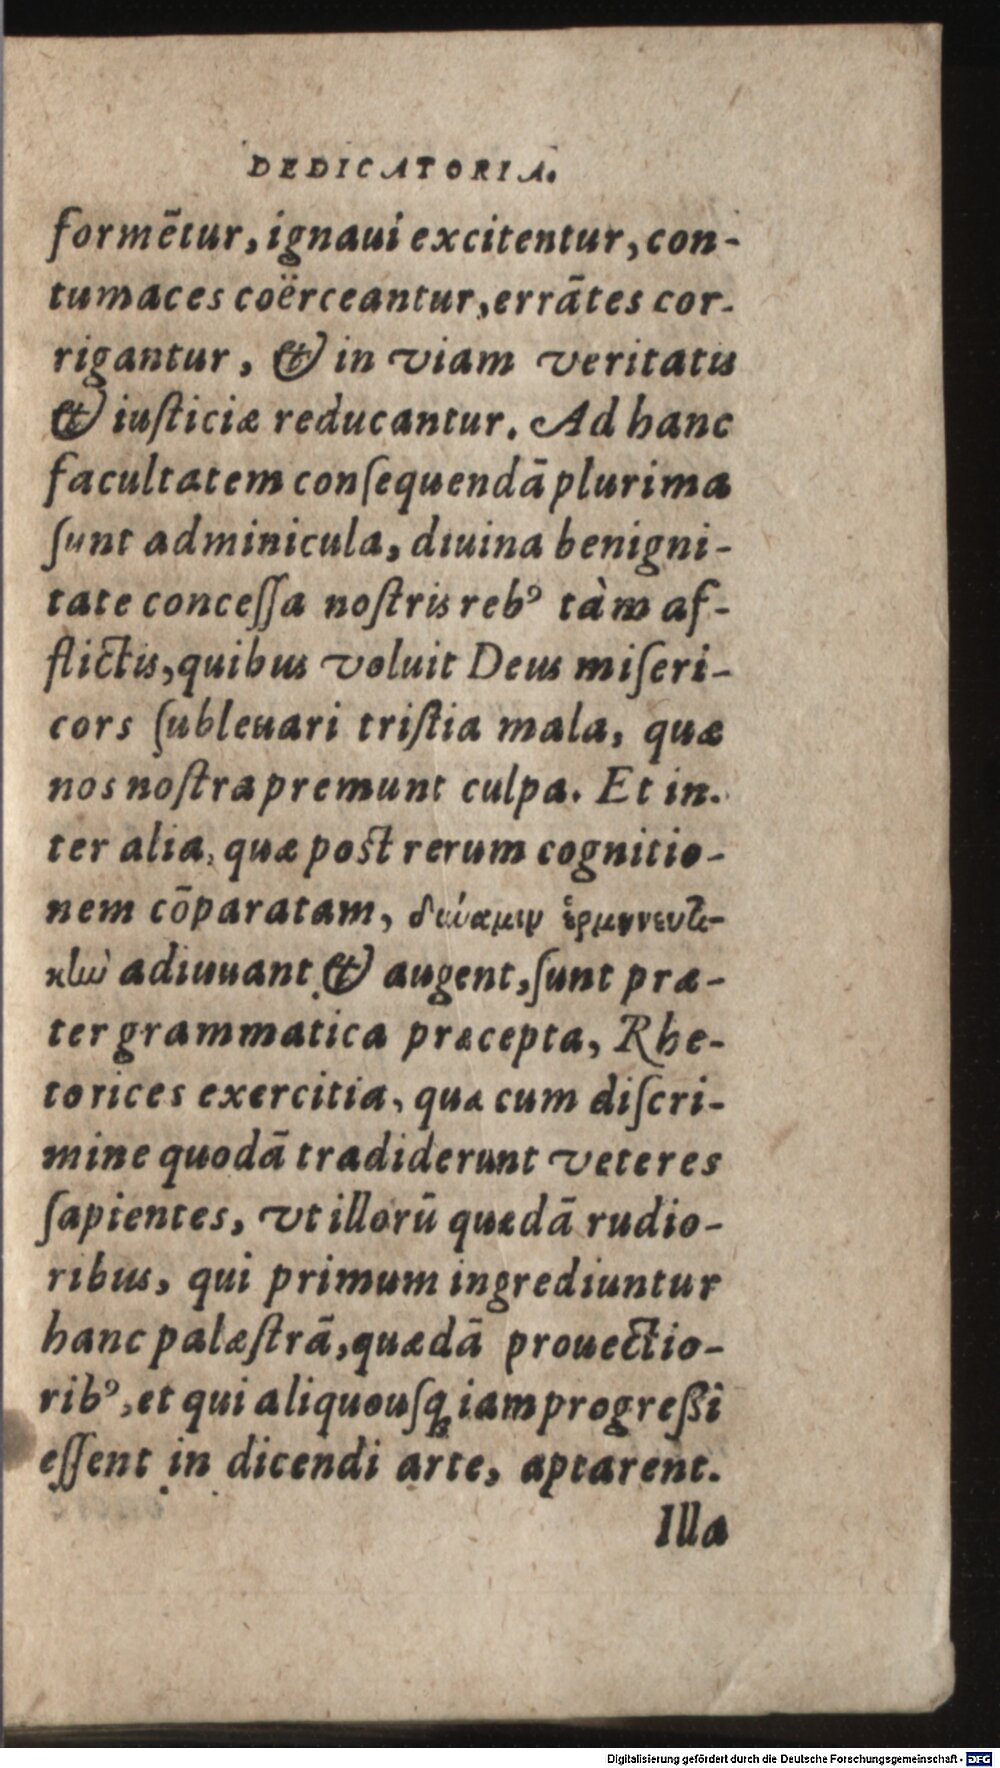 DEDICATORIA.
formẽtur, ignaui excitentur, con-
tumaces coërceantur, errãtes cor-
rigantur, & in viam veritatis
& iuſticiæ reducantur. Ad hanc
facultatem conſequendã plurima
ſunt adminicula, diuina benigni-
tate conceſſa noſtris rebꝰ tàm af-
flictis, quibus voluit Deus miſeri-
cors ſubleuari triſtia mala, quæ
nos noſtra premunt culpa. Et in-
ter alia, quæ poſt rerum cognitio-
nem cõparatam, δύναμιν ἑρμηνευτι-
κὴν adiuuant & augent, ſunt præ-
ter grammatica præcepta, Rhe-
torices exercitia, quæ cum diſcri-
mine quodã tradiderunt veteres
ſapientes, vt illorũ quædã rudio-
ribus, qui primum ingrediuntur
hanc palæſtrã, quædã prouectio-
ribꝰ, et qui aliquouſqꝫ iam progreßi
eſſent in dicendi arte, aptarent.
Illa
Digitalisierung gefördert durch die Deutsche Forschungsgemeinschaft - DFG